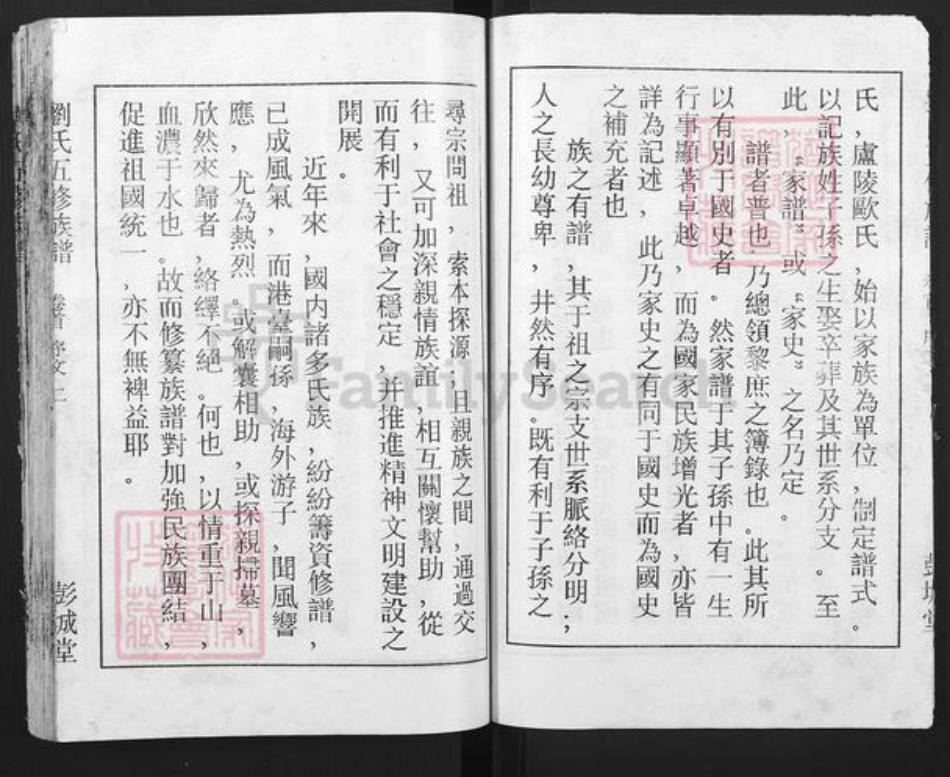 氏，盧陵歐氏，始以家族為單位，制定譜式。
以記族姓子孫之生娶卒葬及其世系分支。至
此，“家譜”或“家史”之名乃定。
譜者普也，乃總領黎庶之簿錄也。此其所
以有別于國史者。然家譜于其子孫中有一生
行事顯著卓越，而為國家民族增光者，亦皆
詳為記述，此乃家史之有同于國史而為國史
之補充者也
族之有譜，其于祖之宗支世系脈絡分明；
人之長幼尊卑，井然有序。既有利于子孫之
尋宗問祖，索本探源，且親族之間，通過交
往，又可加深親情族誼，相互關懷幫助，從
而有利于社會之穩定，并推進精神文明建設之
開展。
近年來，國内諸多氏族，紛紛籌資修譜，
已成風氣，而港臺嗣孫，海外游子，聞風響
應，尤為熱烈。或解囊相助，或探親掃墓，
欣然來歸者，絡繹不絕。何也，以情重于山，
血濃于水也。故而修纂族譜對加強民族團結，
促進祖國統一，亦不無裨益耶。
劉氏五修族譜 卷首 序文 彭城堂
FamilySearch